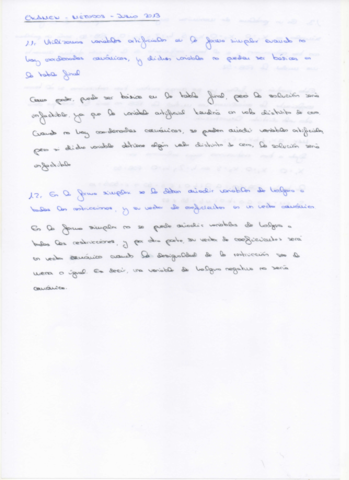 EXAMEN - MÉTODOS - JULIO 2013
1.1. Utilizamos variables artificiales en la forma simplex cuando no
hay coordenadas canónicas, y dichas variables no pueden ser básicas en
la tabla final.
puede ser básica en la tabla final, pero la solución será
infactible ya que la variable artificial tendría un valor distinto de cero.
Cuando no hay coordenadas canónicas, se pueden añadir variables artificiales,
pero si dicha variable obtiene algún valor distinto de cero, la solución será
infactible.
1.2. En la forma simplex se le deben añadir variables de holgura a
todas las restricciones, y su vector de coeficientes es un vector canónico.
En la forma simplex no se puede añadir variables de holgura a
todas las restricciones, y por otra parte, su vector de coeficientes será
un vector canónico cuando la desigualdad de la restricción sea de
menor o igual. Es decir, una variable de holgura negativa no sería
canónica.